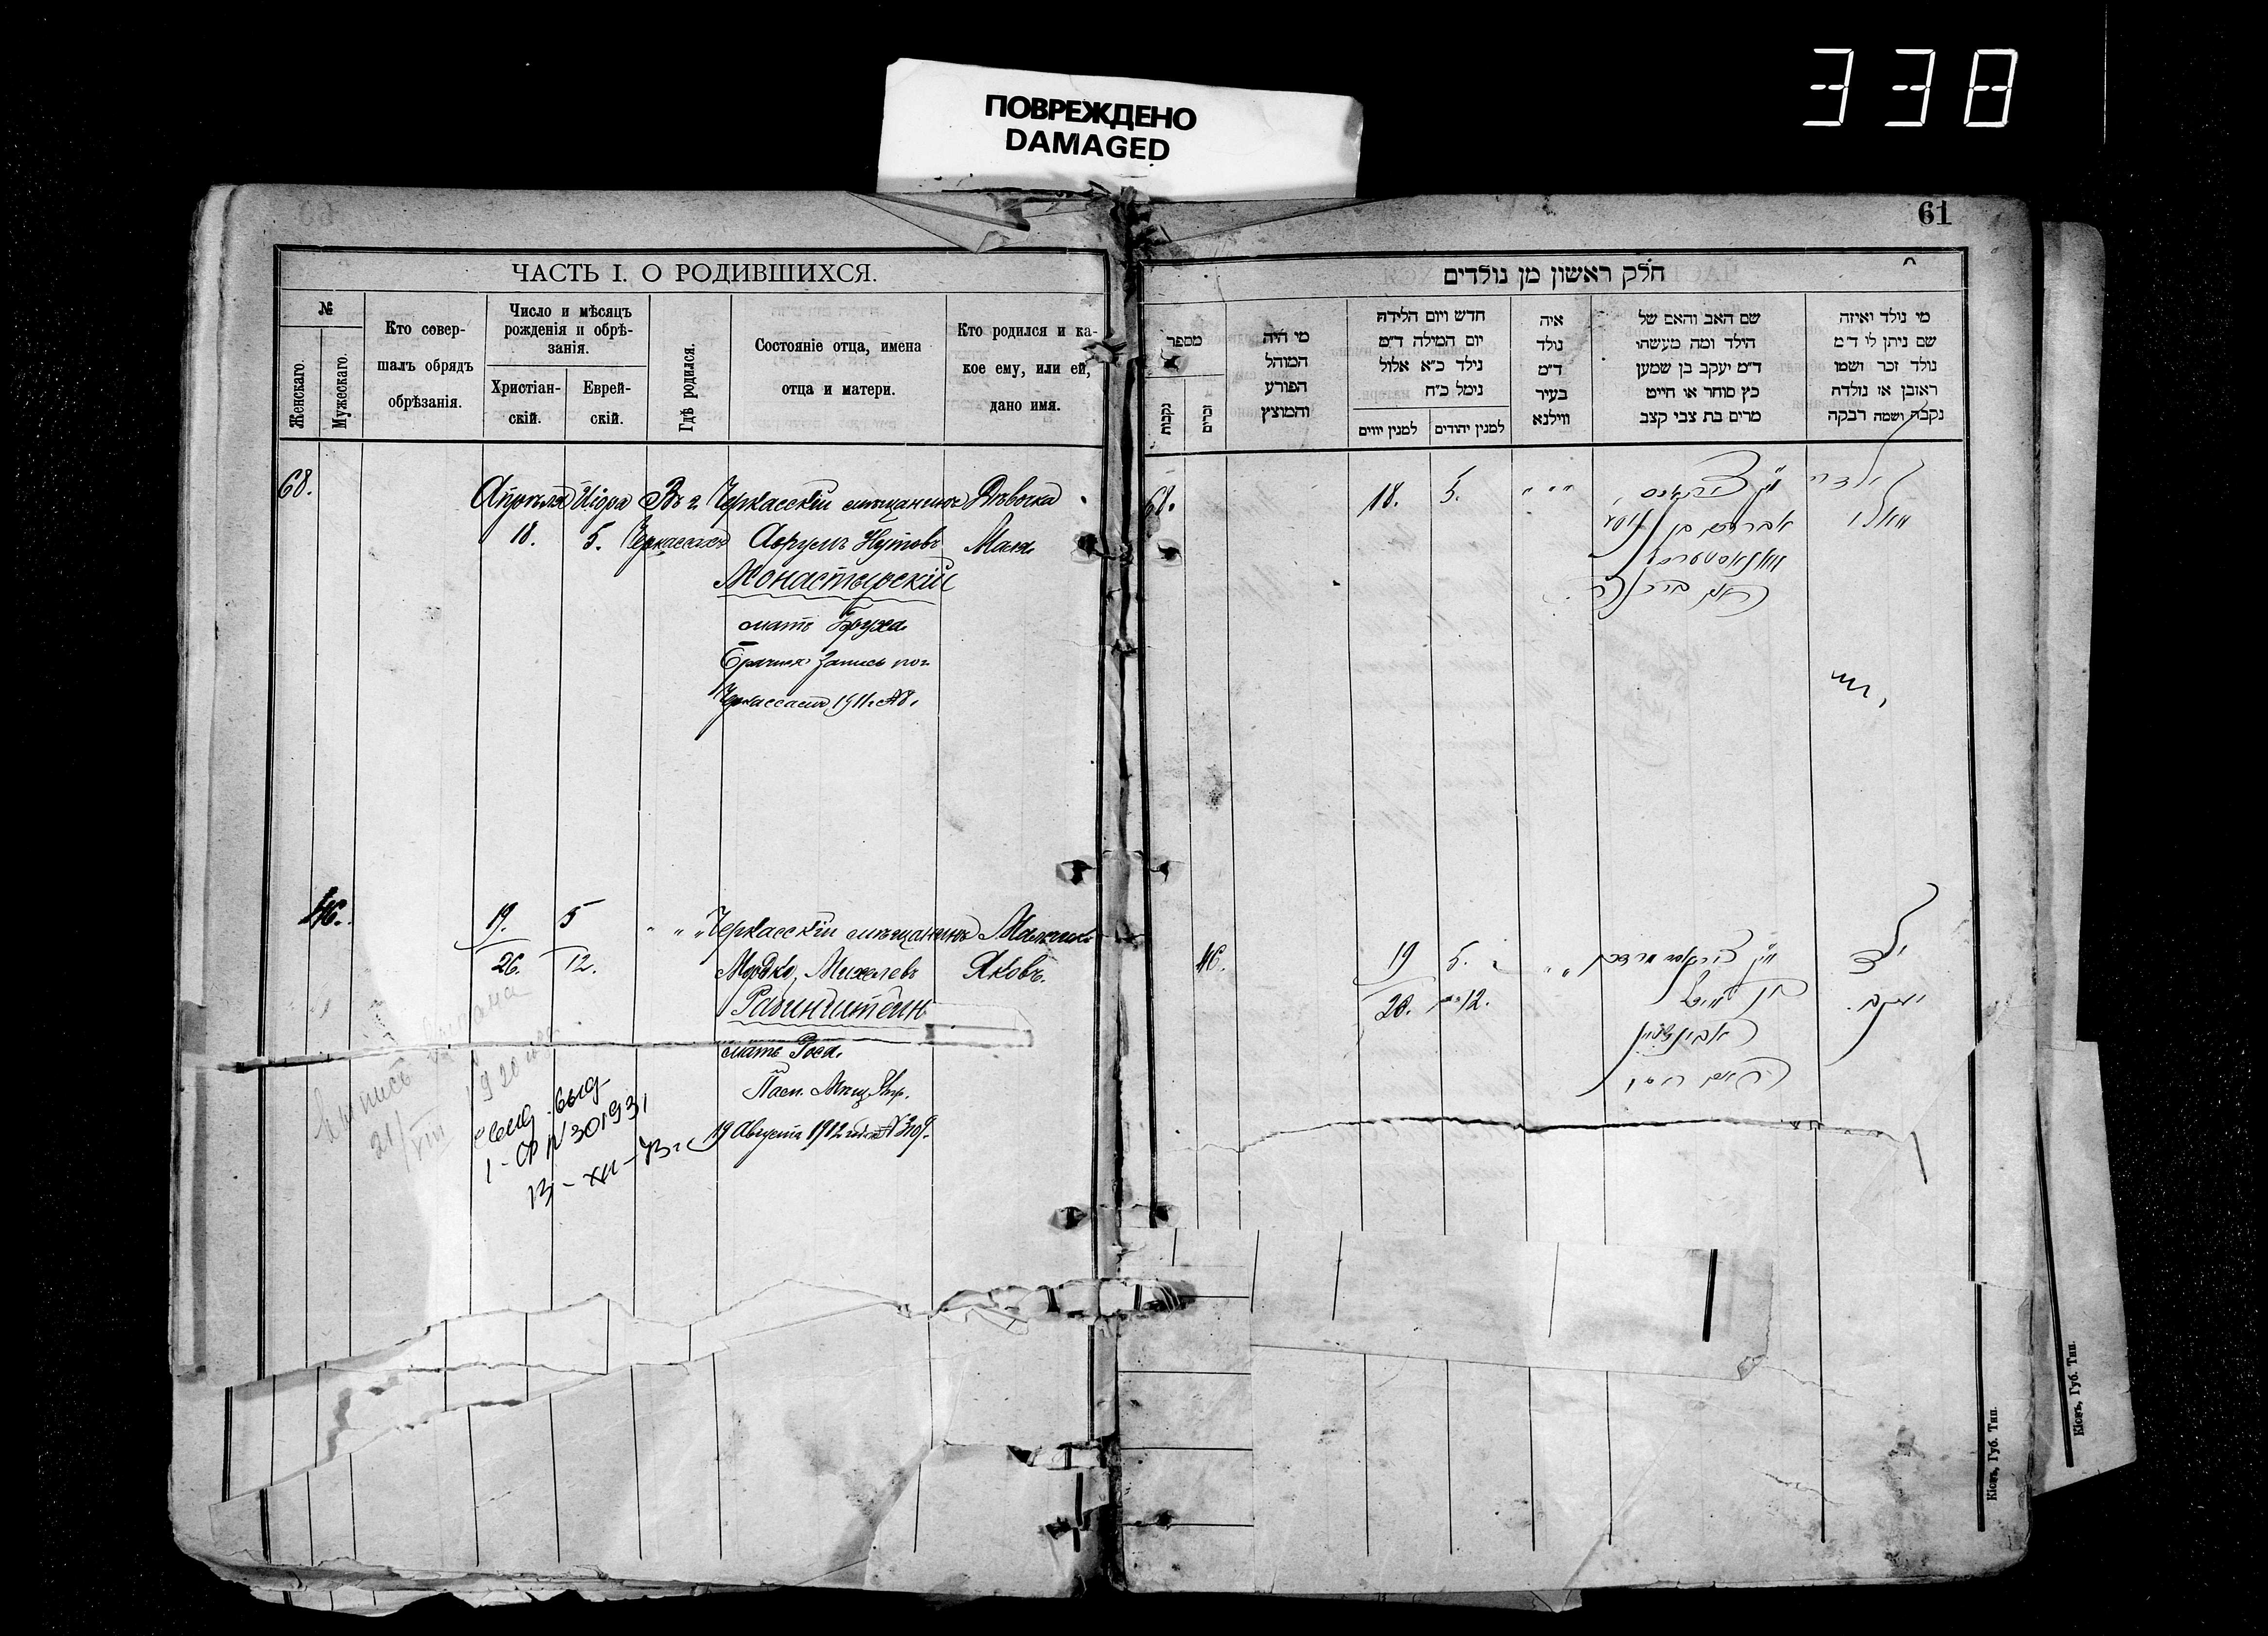 338
ПОВРЕЖДЕНО
DAMAGED
61
ЧАСТЬ I. О РОДИВШИХСЯ.
№
Женскаго.
Мужескаго.
Кто совер-
шалъ обрядъ
обрѣзанія.
Число и мѣсяцъ
рожденія и обрѣ-
занія.
Христіан-
скій.
Еврей-
скій.
Гдѣ родился.
Состояніе отца, имена
отца и матери.
Кто родился и ка-
кое ему, или ей,
дано имя.
68.
Апрѣля Іиора Въ г. Черкасскій мѣщанинъ Дѣвочка
18. 5. Черкассахъ Аврумъ Нутовъ Маня.
Монастырскій
мать Бруха.
запись по г.
Черкассамъ 1911 г. № 8.
46. 19. 5 " " " Черкасскій мѣщанинъ Мальчикъ
26. 12. Мордко Михелевъ Яковъ.
Рабинштейнъ
мать Роза.
Пасп. Мѣщ. Упр.
19 Августа 1912 года № 3109.
21/VIII 1920
выд.
1-СР № 301931
13-XII-73 г.
חלק ראשון מן נולדים
מספר
נקבות
זכרים
מי היה
המוהל
הפורע
והמוצץ
חדש ויום הלידה
יום המילה ד״מ
נולד כ״א אלול
נימל כ״ח
למנין יוונים
למנין יהודים
איה
נולד
ד״מ
בעיר
ווילנא
שם האב והאם של
הילד ומה מעשהו
ד״מ יעקב בן שמעון
כץ סוחר או חייט
מרים בת צבי קצב
מי נולד ואיזה
שם ניתן לו ד״מ
נולד זכר ושמו
ראובן או נולדה
נקבה ושמה רבקה
68. 18. 5. " " "
ילדה
מאניא
אברהם בן נטע
מאנאסטערסקי
46. 19 5. " "
ילד
מרדכי
26. 12.
בן מיכל
יעקב.
ראבינשטיין
Кіевъ, Губ. Тип.
Кіевъ, Губ. Тип.